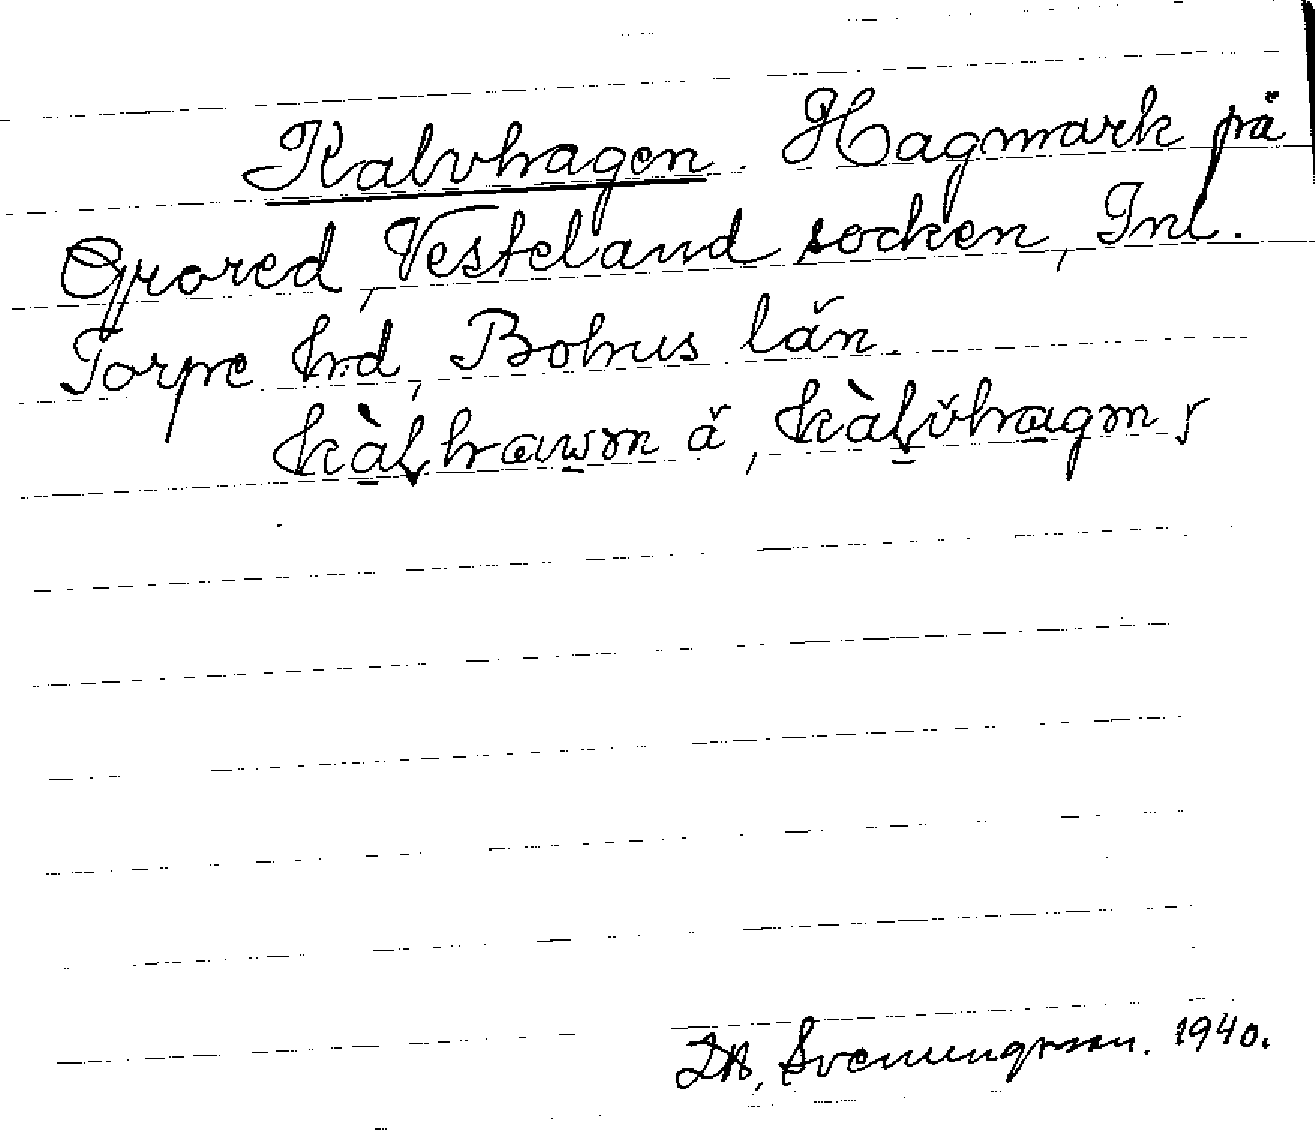 Kalvhagen. Hagmark på
Grored, Vesteland socken, Inl.
Torpe hd, Bohus län.
kàḷhawm ä, kàḷvhagm
Svenungsson. 1940.